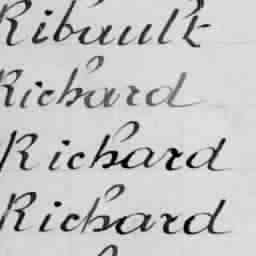 Ribault
Richard
Richard
Richard